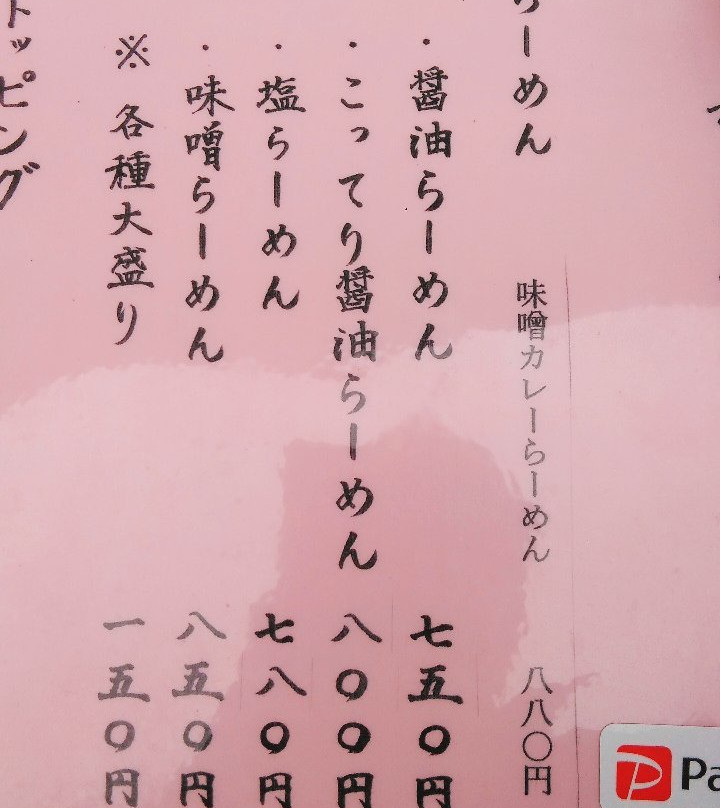 らーめん
味噌カレーらーめん 八八〇円
・醤油らーめん 七五〇円
・こってり醤油らーめん 八〇〇円
・塩らーめん 七八〇円
・味噌らーめん 八五〇円
※各種大盛り 一五〇円
トッピング
Pa